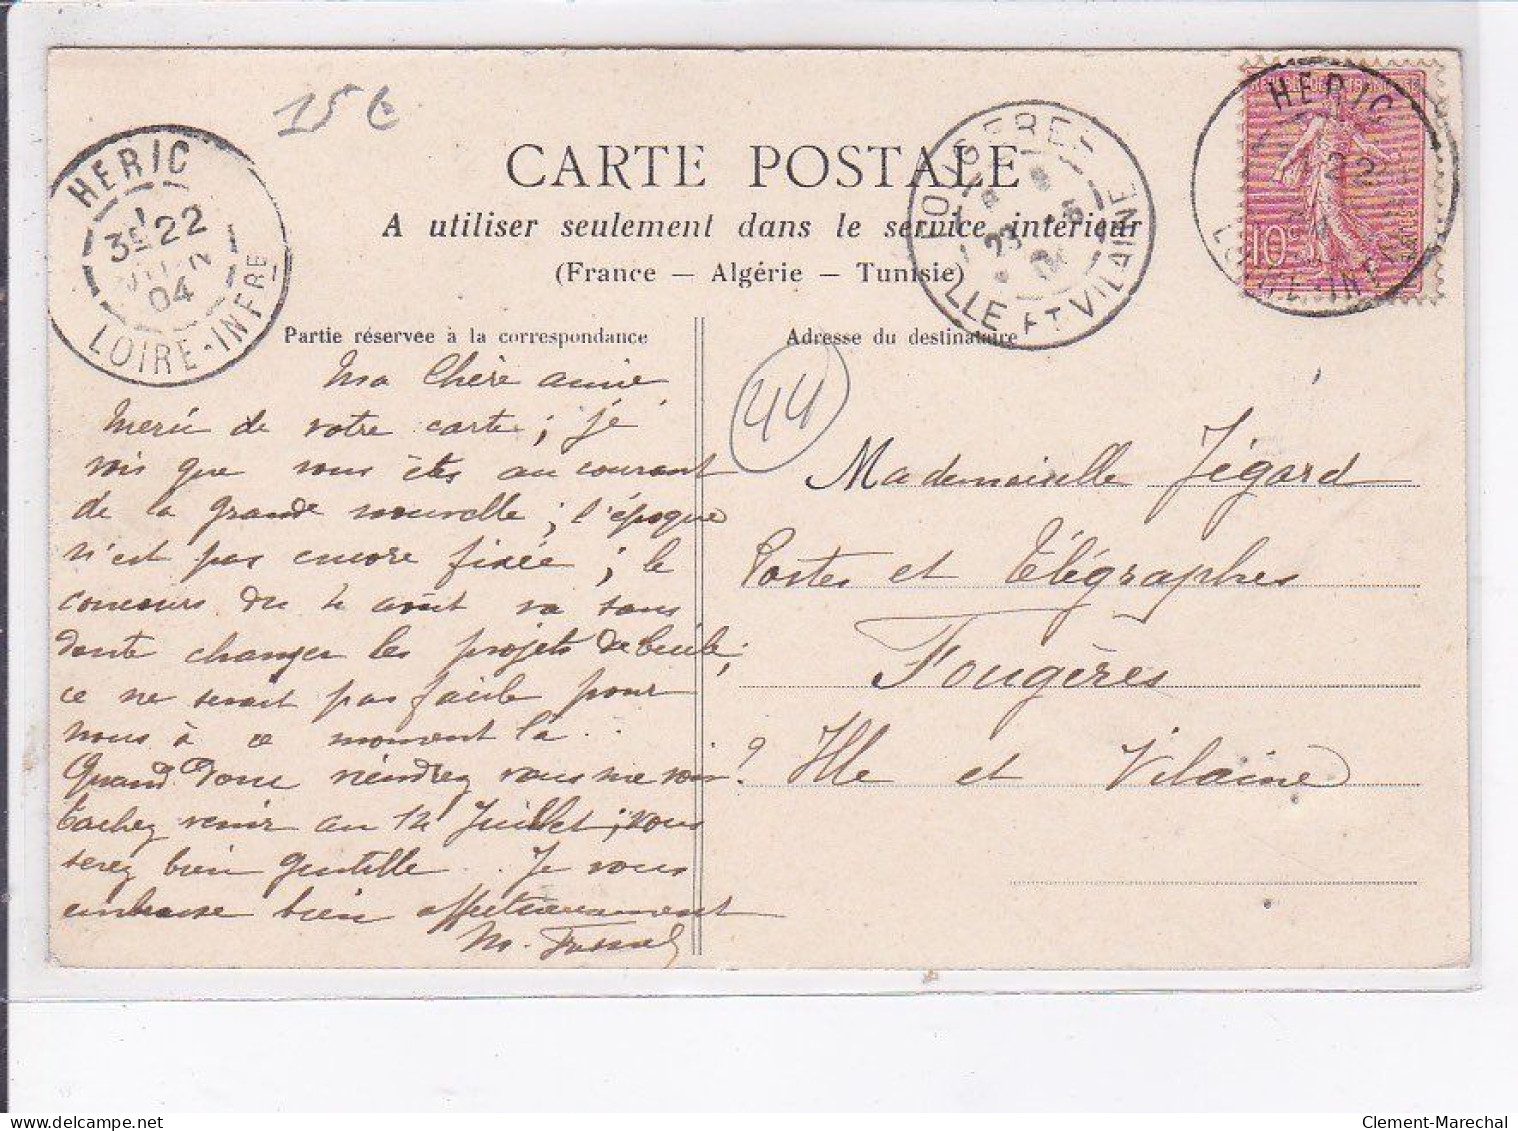 15 €
HERIC
3E 22
JUIN
04
LOIRE-INFRE
CARTE POSTALE
A utiliser seulement dans le service intérieur
(France — Algérie — Tunisie)
FOUGERES
23
ILLE ET VILAINE
HERIC
22
LOIRE-INFRE
10
Partie réservée à la correspondance
Ma Chère amie
Merci de votre carte ; je
vois que vous êtes au courant
de la grande nouvelle ; l'époque
n'est pas encore fixée ; le
concours du 4 août va sans
doute changer les projets de
ce ne serait pas facile pour
nous à ce moment là..
Quand donc viendrez vous me voir ?
Tachez venir au 14 Juillet ; vous
serez bien gentille.. Je vous
embrasse bien affectueusement
M.
Adresse du destinataire
44
Mademoiselle Jégard
Postes et Télégraphes
Fougères
Ille et Vilaine
Clement-Marechal